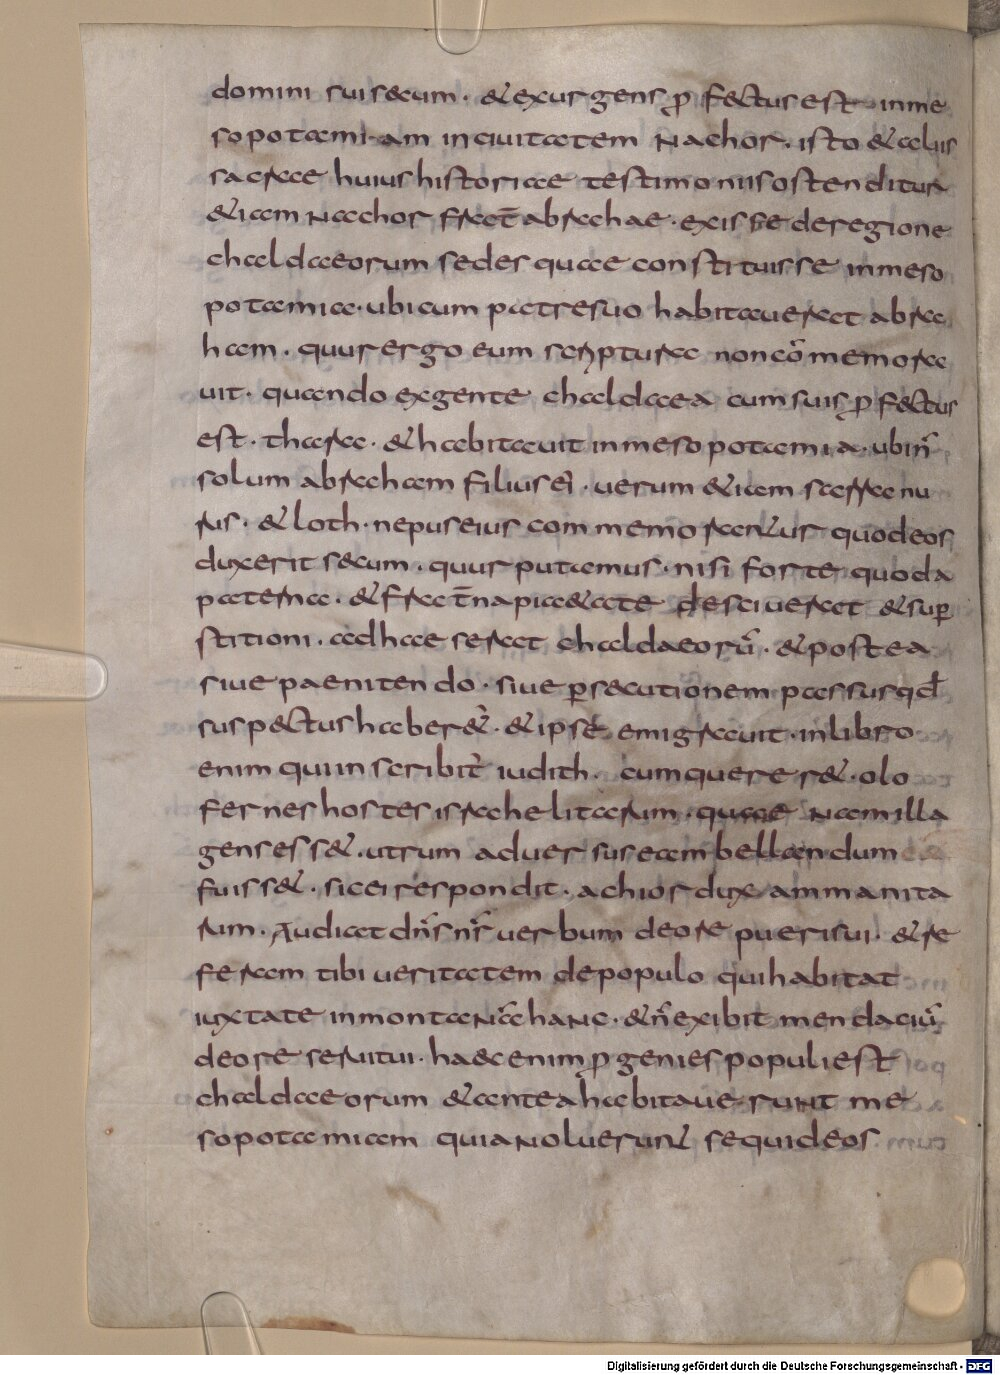 domini sui secum · & exurgens ꝓfectus est in me
sopotami·am in ciuitatem Nachor · isto & aliis
sacrae huius historiae testimoniis ostenditur
& iam Nachor frater̄ abrahae · exisse de regione
chaldaeorum sedesquae constituisse in meso
potamia · ubi cum patre suo habitauerat abra
ham · quur ergo eum scriptura non cōmemora
uit · quando ex gente chaldaea cum suis ꝓfectus
est · thara · & habitauit in mesopotamia · ubi ñ
solum abraham filius ei' · uerum & iam sarra nu
rus · & loth · nepus eius commemorantur quod eos
duxerit secum · quur putamus · nisi forte quod a
paterna · & frat̄na piaetate desciuerat & suꝑ
stitioni · adhaeserat chaldaeorū · & postea
siue paenitendo · siue ꝑsecutionem passus qd̄
suspectus haber&' · & ipse emigrauit · in libro
enim qui inscribit' iudith · cum querer& · olo
fernes hostes israhelitarum · quae Nam illa
gens ess& · utrum aduersus eam bellandum
fuiss& · sic ei respondit · achior dux ammanita
rum · Audiat dn̄s nr̄ uerbum de ore pueri sui · & re
feram tibi ueritatem de populo qui habitat
iuxta te in montaNa haNc · & ñ exibit mendaciū
de ore serui tui · haec enim ꝓgenies populi est
chaldaeorum & antea habitauerunt me
sopotamiam quia Noluerunt sequi deos
Digitalisierung gefördert durch die Deutsche Forschungsgemeinschaft - DFG